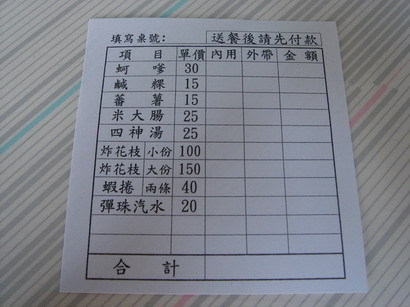 填寫桌號： 送餐後請先付款
項目 單價 內用 外帶 金額
蚵嗲 30
鹹粿 15
蕃薯 15
米大腸 25
四神湯 25
炸花枝 小份 100
炸花枝 大份 150
蝦捲 兩條 40
彈珠汽水 20
合計